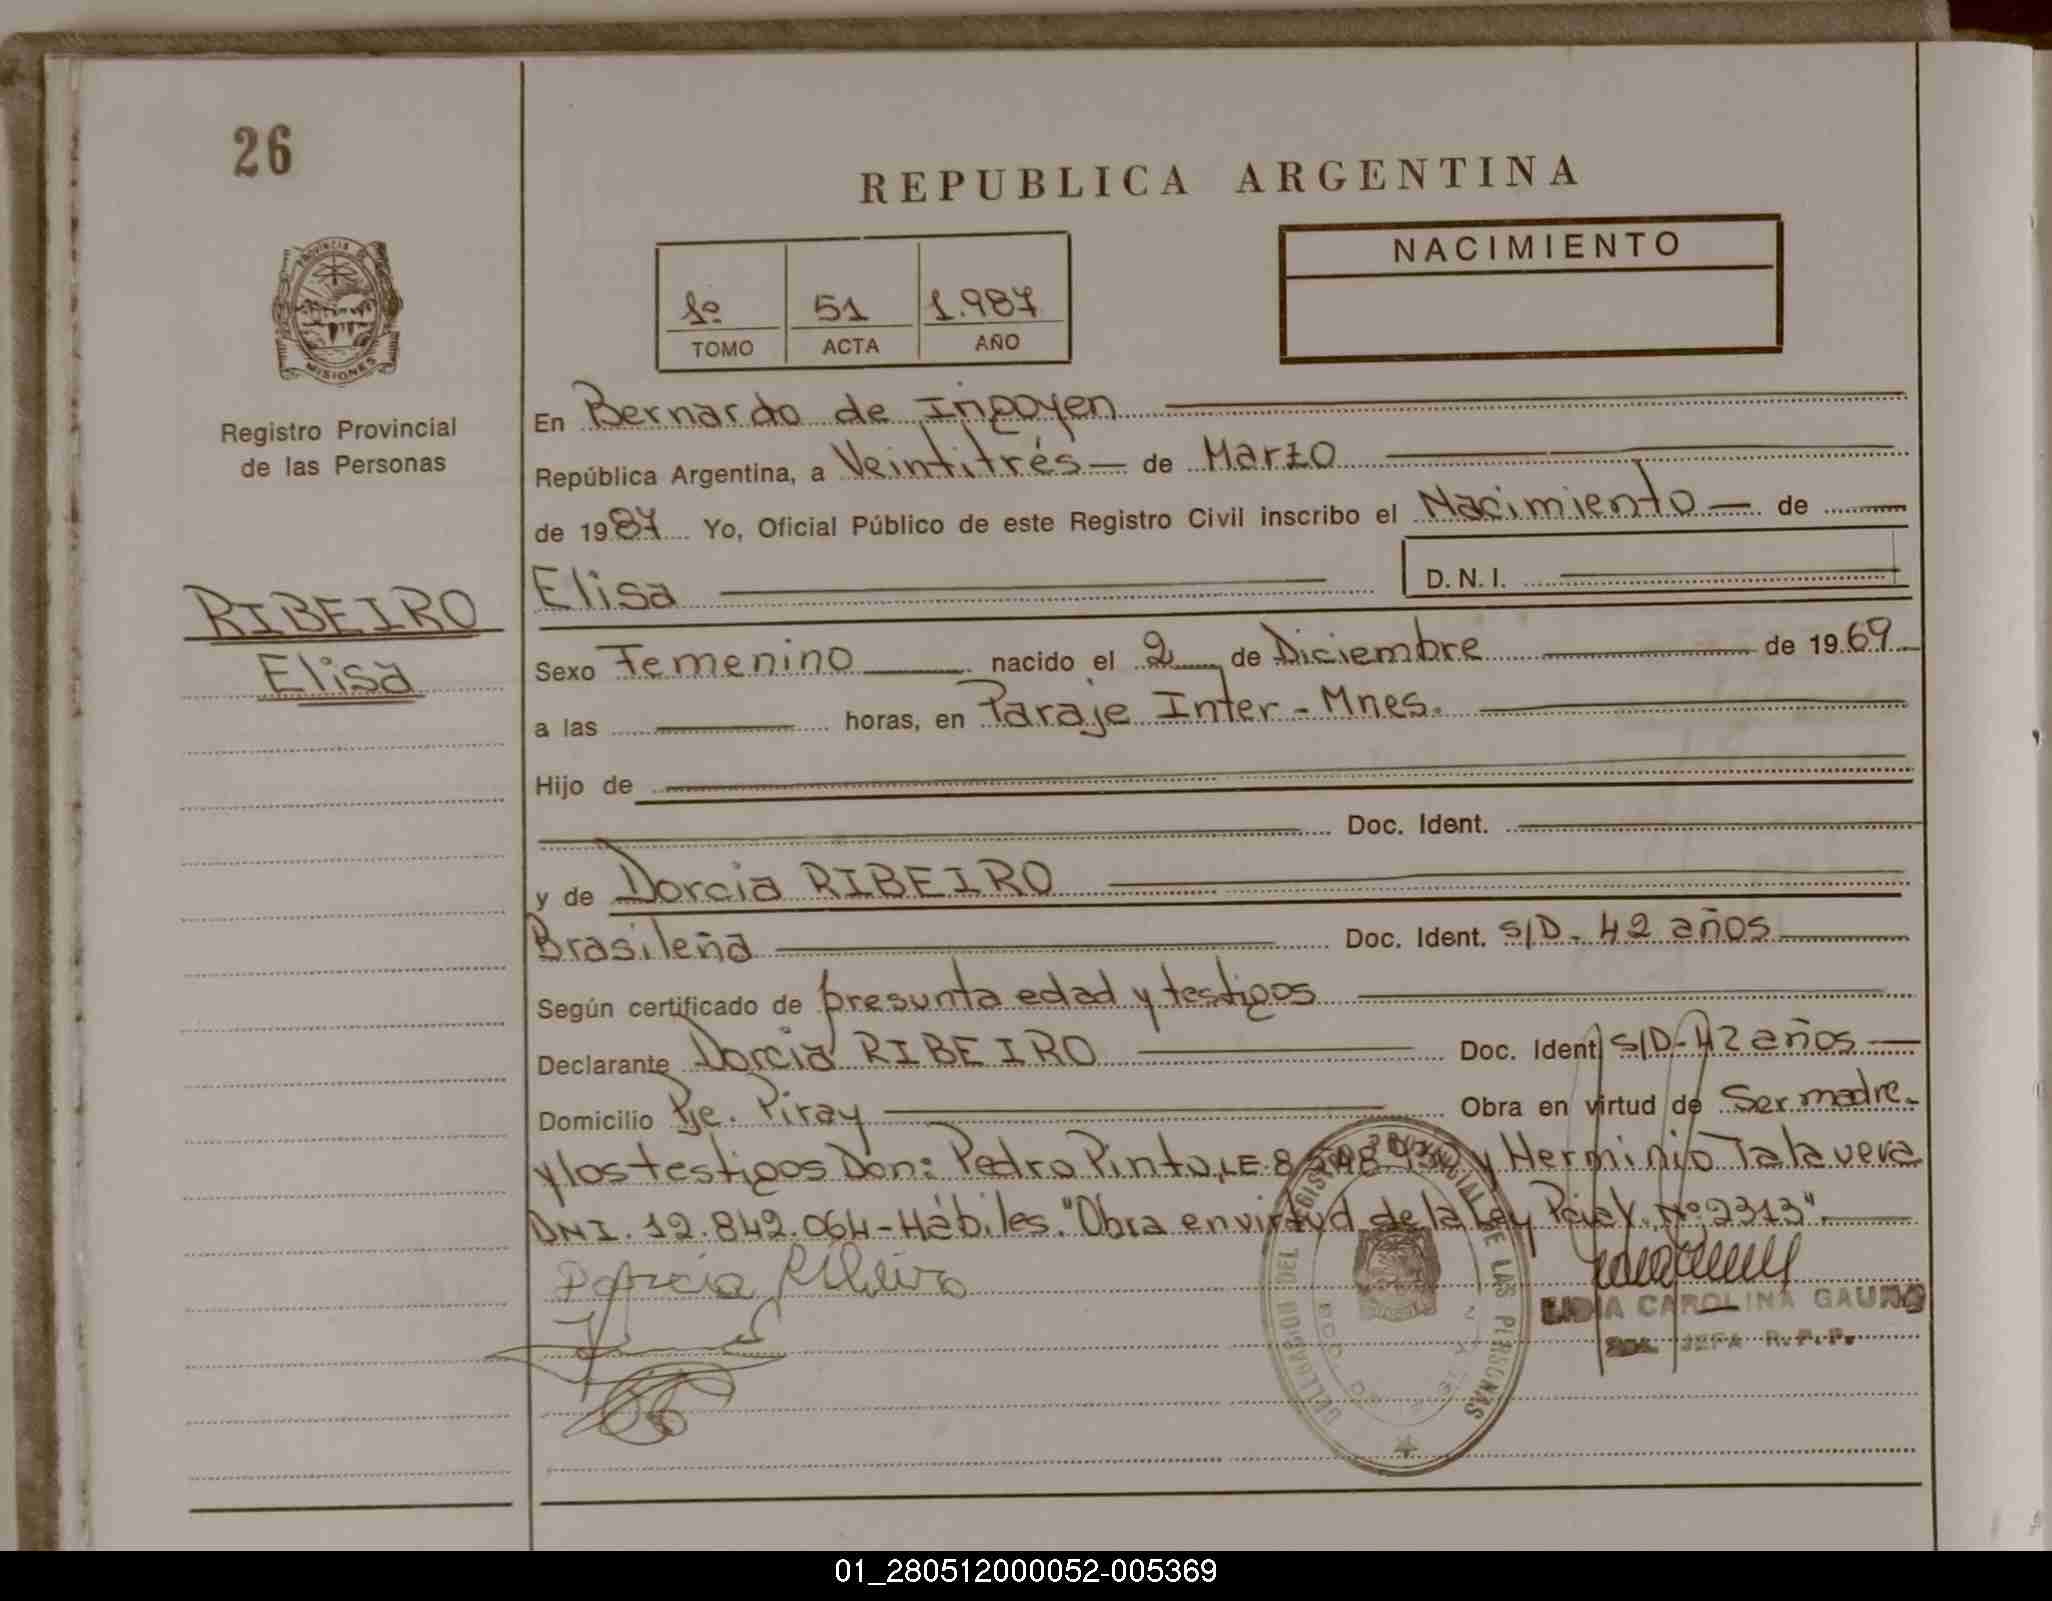 26
REPUBLICA ARGENTINA
PROVINCIA DE MISIONES
Registro Provincial
de las Personas
1º 51 1.987
TOMO ACTA AÑO
NACIMIENTO
RIBEIRO
Elisa
En Bernardo de Irigoyen
República Argentina, a Veintitrés de Marzo
de 1987 Yo, Oficial Público de este Registro Civil inscribo el Nacimiento de
Elisa D.N.I.
Sexo Femenino nacido el 2 de Diciembre de 1969
a las horas, en Paraje Inter-Mnes.
Hijo de
Doc. Ident.
y de Dorcia RIBEIRO
Brasileña Doc. Ident. S/D - 42 años
Según certificado de presunta edad y testigos
Declarante Dorcia RIBEIRO Doc. Ident S/D-42 años
Domicilio Pje. Piray Obra en virtud de Ser madre.
y los testigos Don: Pedro Pinto, LE. y Herminio Talavera
DNI. 12.842.064-Hábiles. "Obra en virtud de la Ley Pcial. Nº 2313".
Ribeiro
LIDIA CAROLINA GAUNA
JEFA R.P.P.
DELEGACION DEL REGISTRO PROVINCIAL DE LAS PERSONAS
01_280512000052-005369